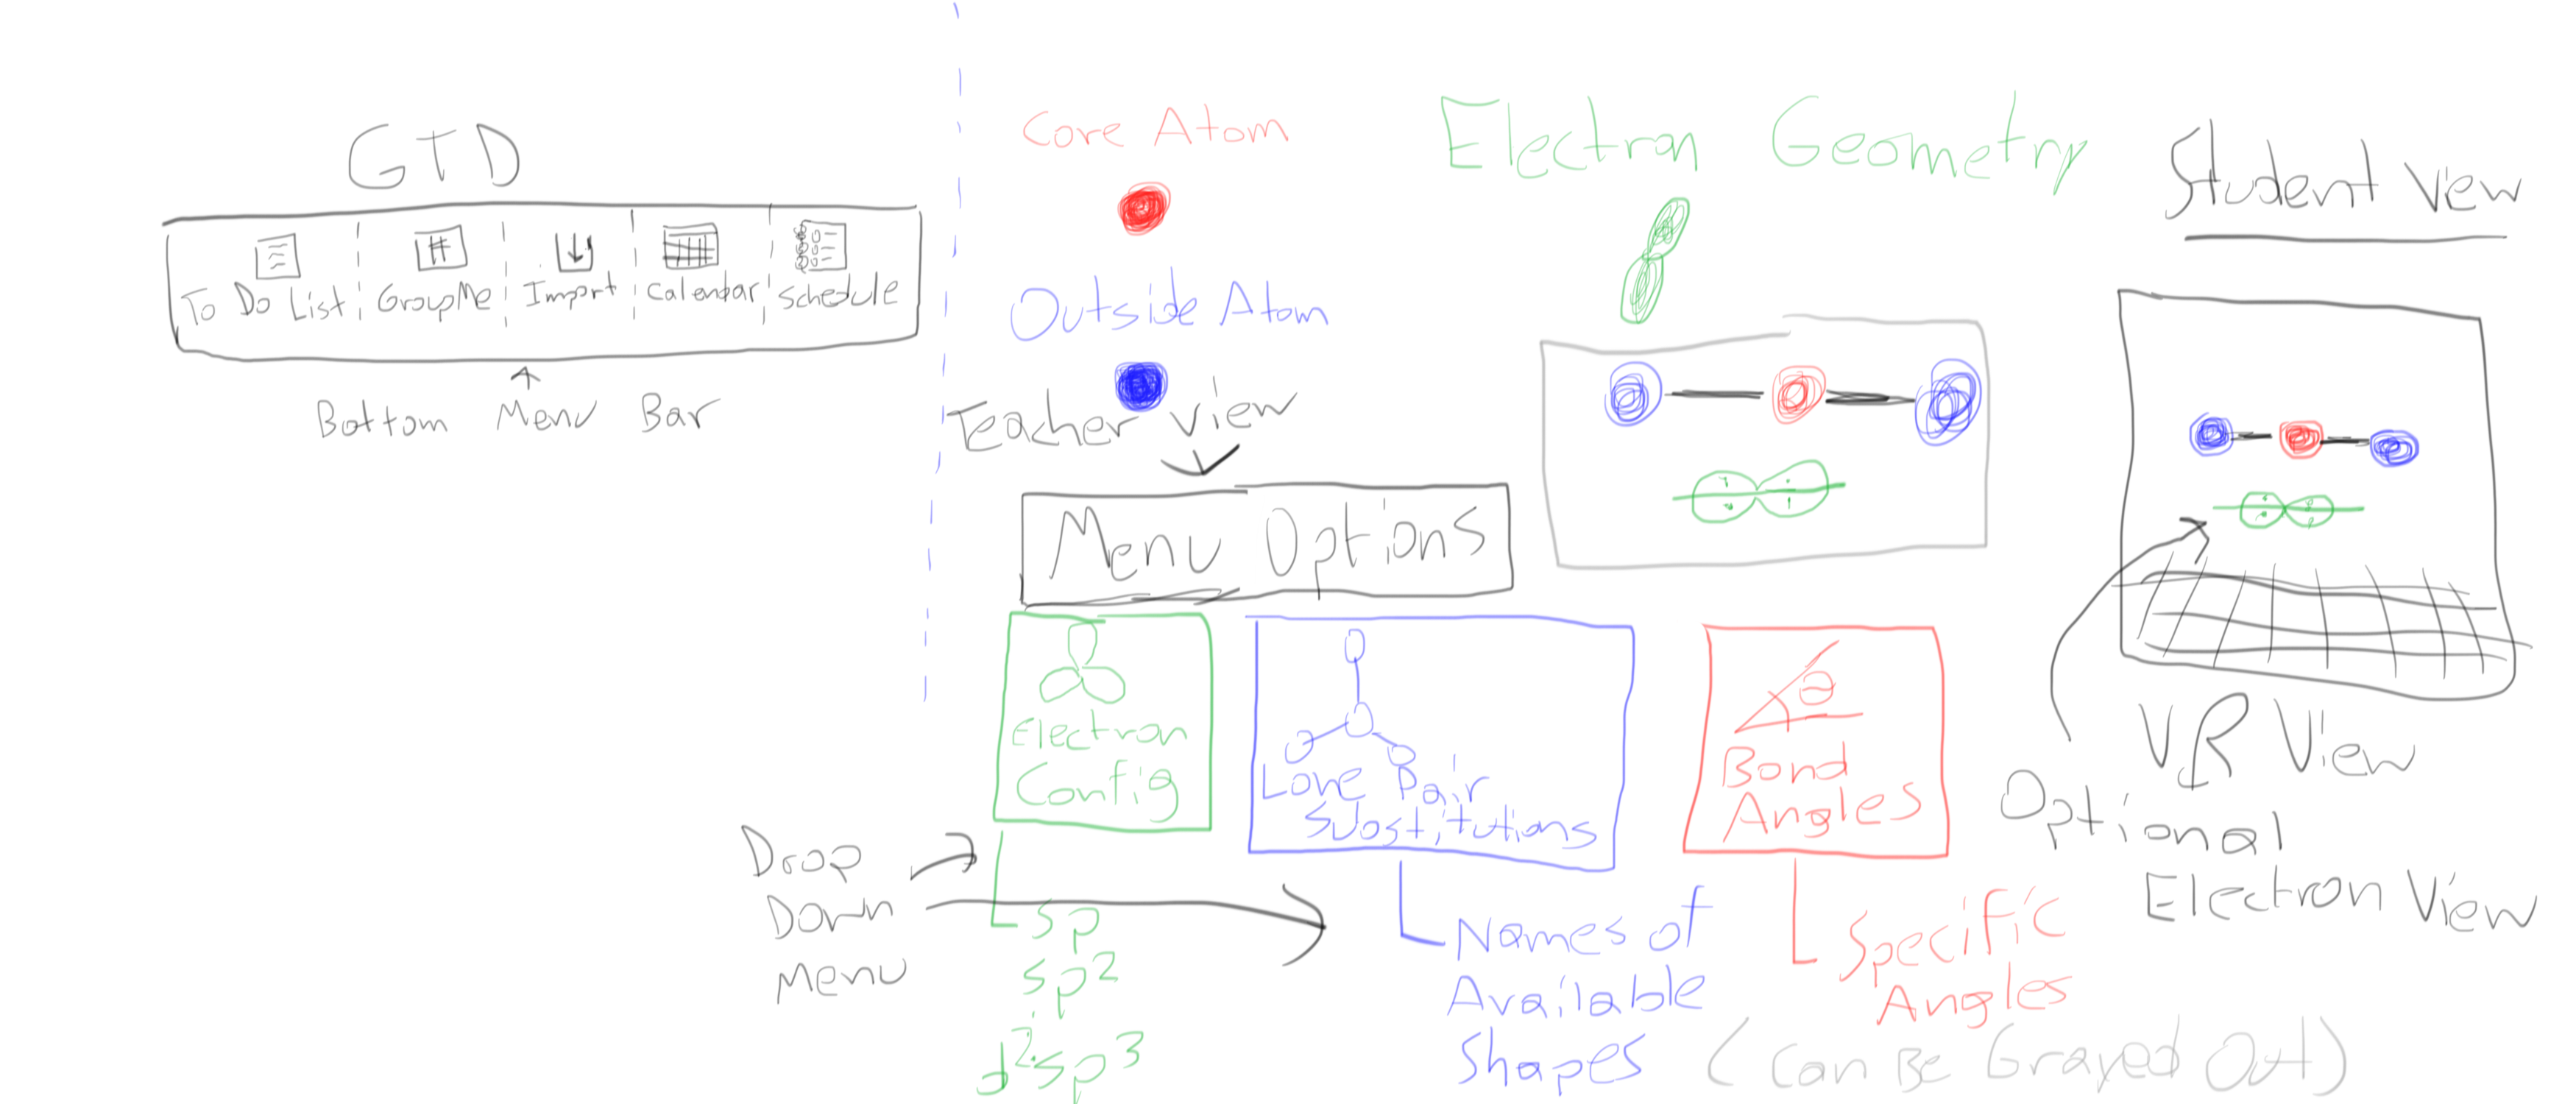 GTD
To Do List
GroupMe
Import
Calendar
Schedule
Bottom Menu Bar
Core Atom
Outside Atom
Teacher View
Menu Options
Electron
Config
Lone Pair
Substitutions
Bond
Angles
Drop
Down
Menu
sp
sp²
d²sp³
Names of
Available
Shapes
Specific
Angles
(Can Be Grayed Out)
Electron Geometry
Student View
VR View
Optional
Electron View
θ